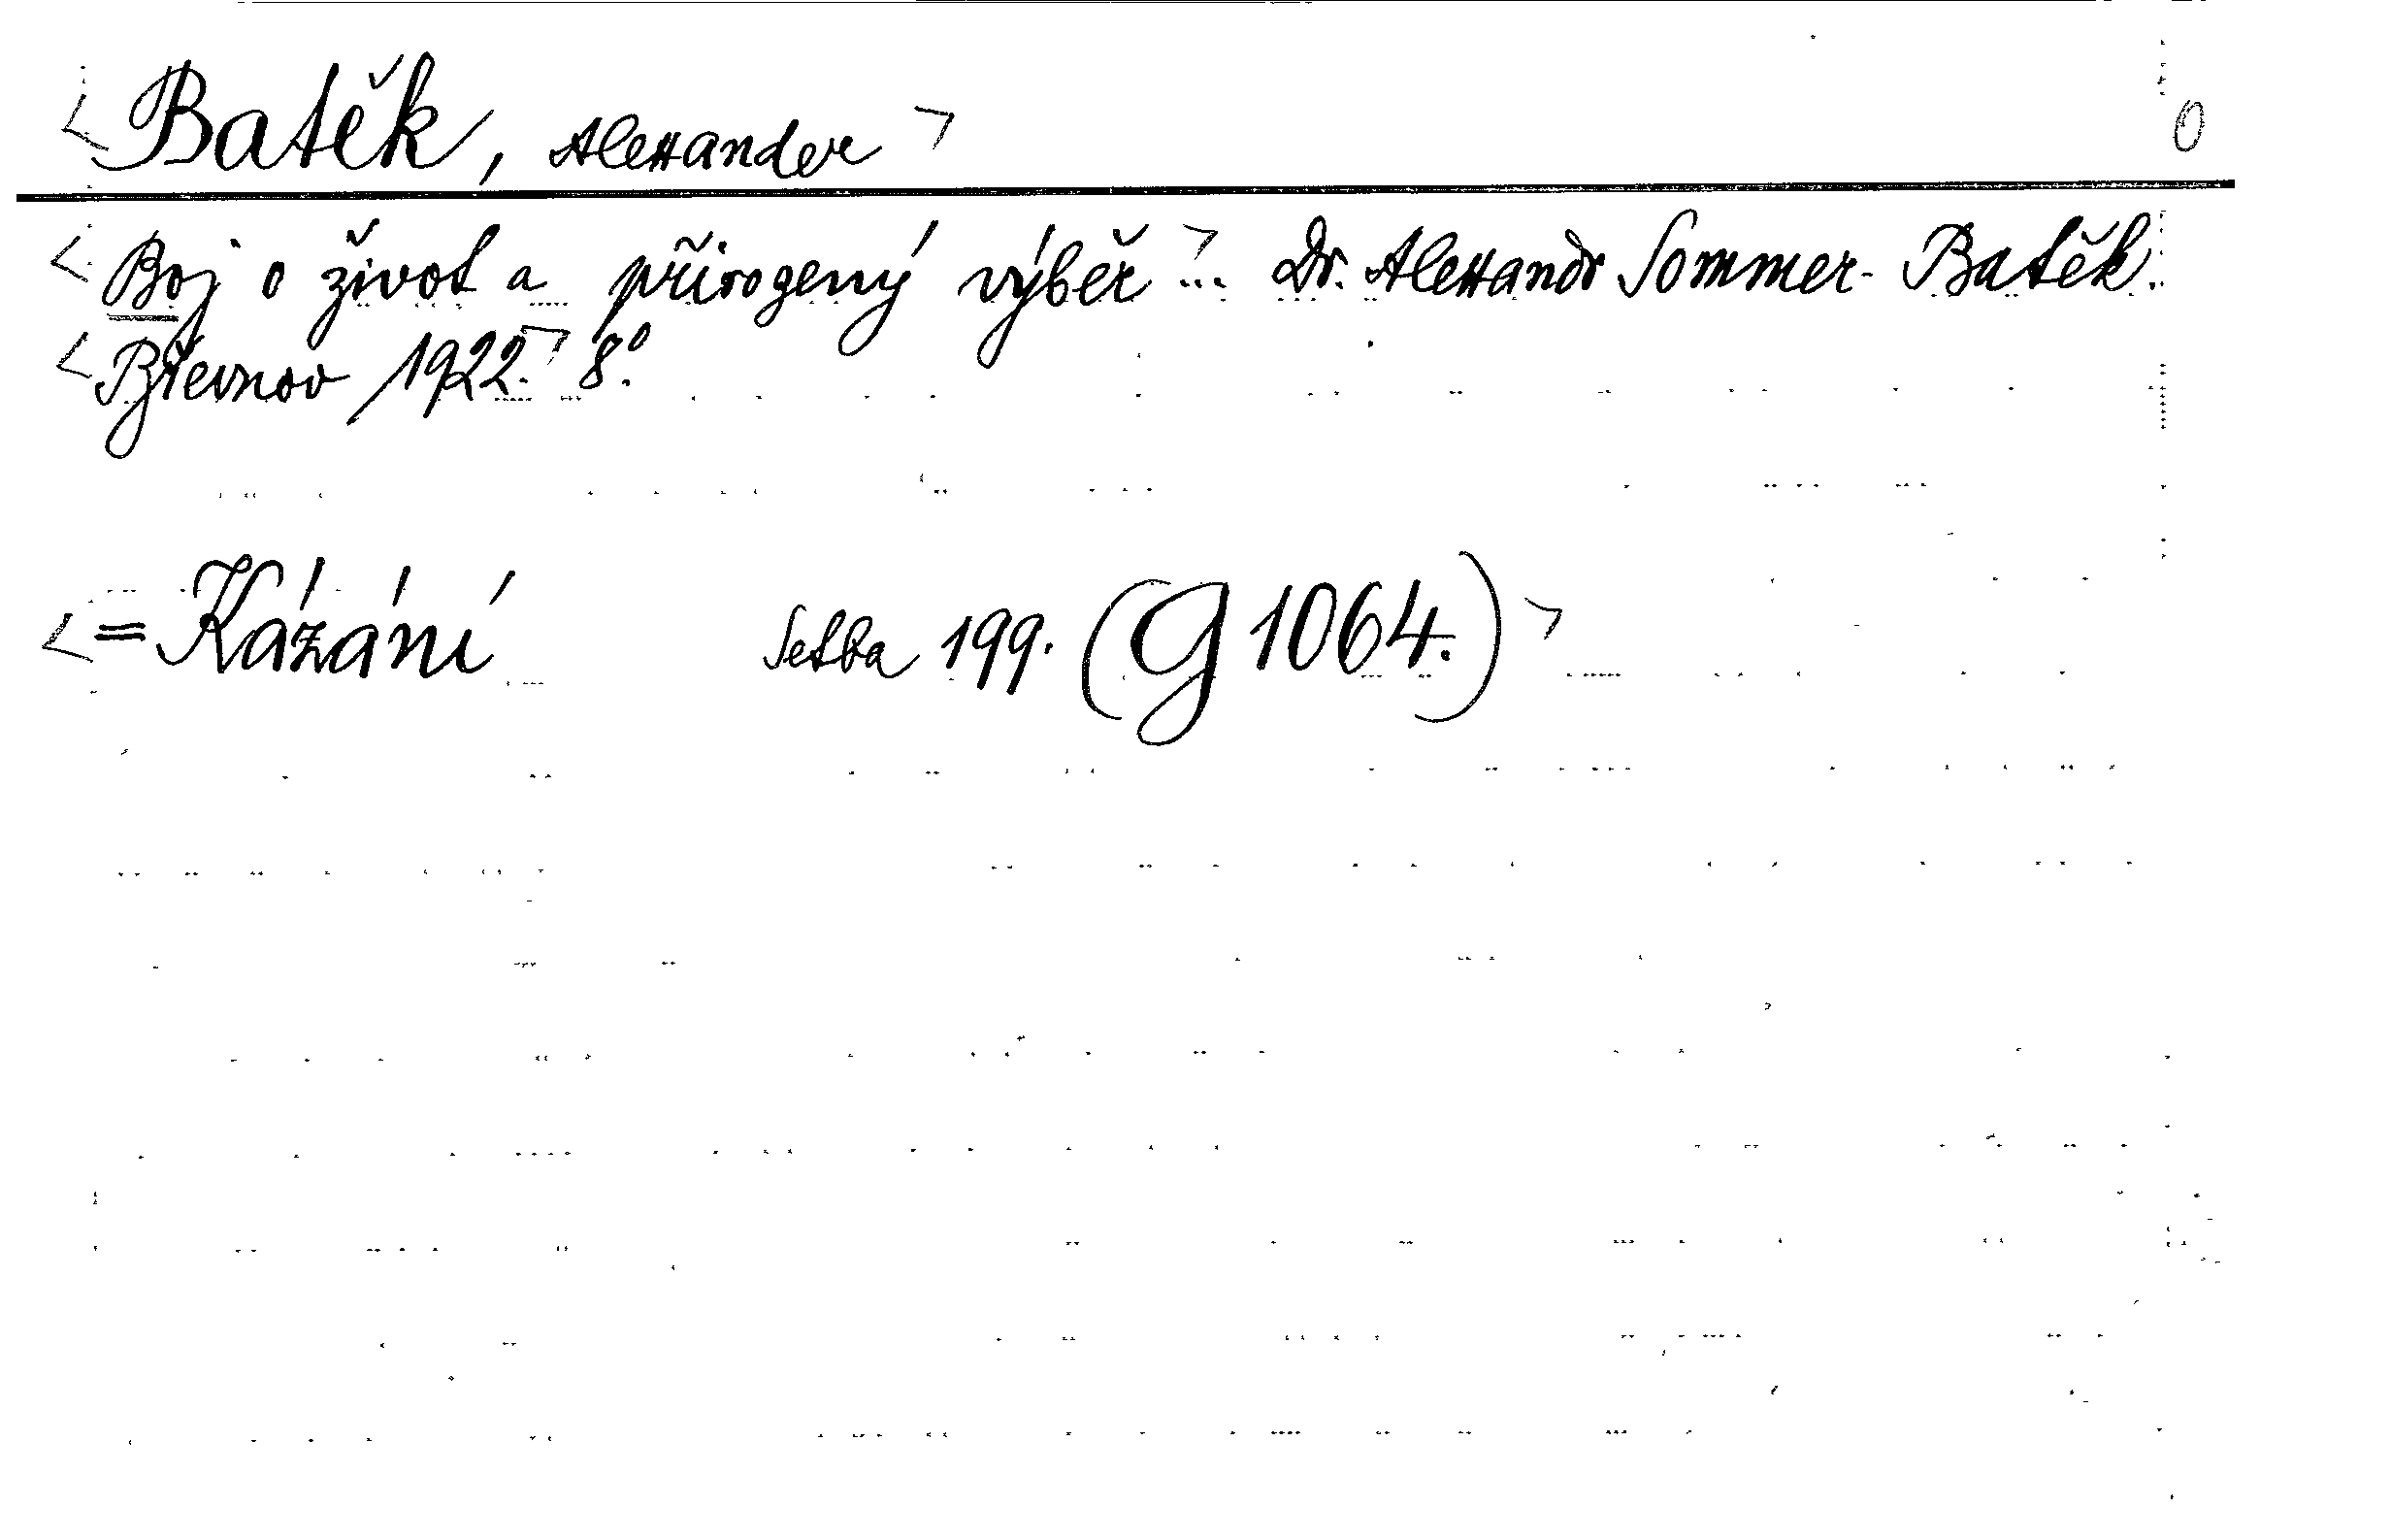 < Batěk, Alexander > 0
< Boj o život a přirozený výběr > ... Dr. Alexandr Sommer-Batěk.
< Břevnov 1922. > 8°.
< = Kázání Setba 199. (G 1064.) >